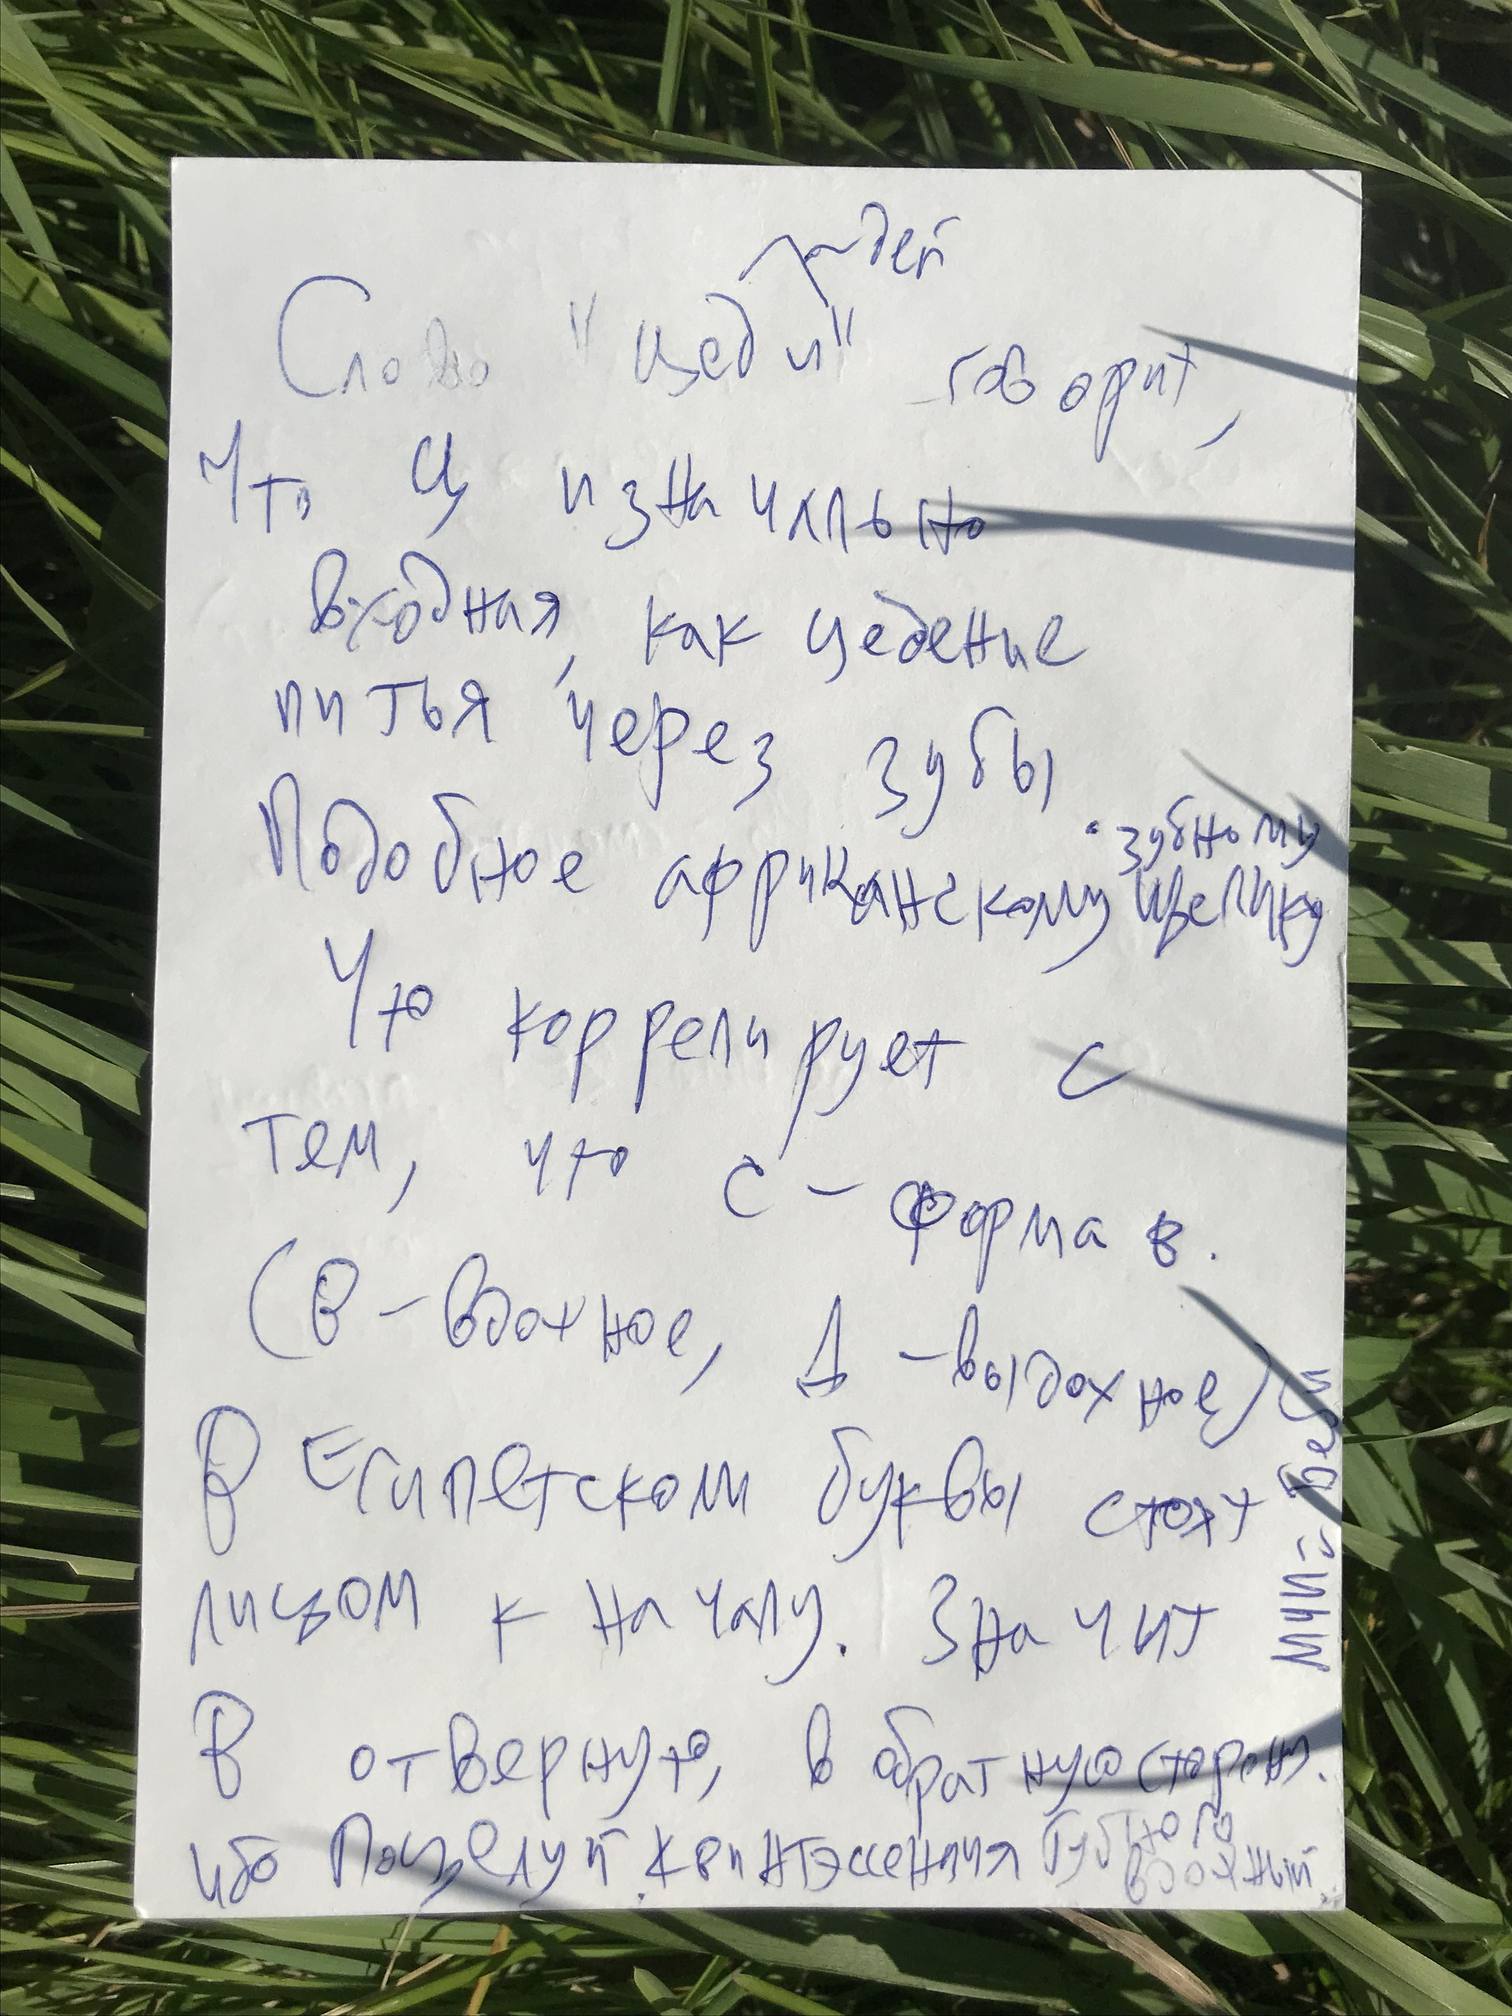 Слово "цеди" говорит,
что Ц изначально
входная, как цедение
питья через зубы
Подобное африканскому зубному щелчку
Что коррелирует с
тем, что с - форма в.
(В - вдохное, Д - выдохное)
В Египетском буквы стоят
лицом к началу. Значит
В отвернуто, в обратную сторону.
ибо Поцелуй квинтэссенция губного
вдохный.